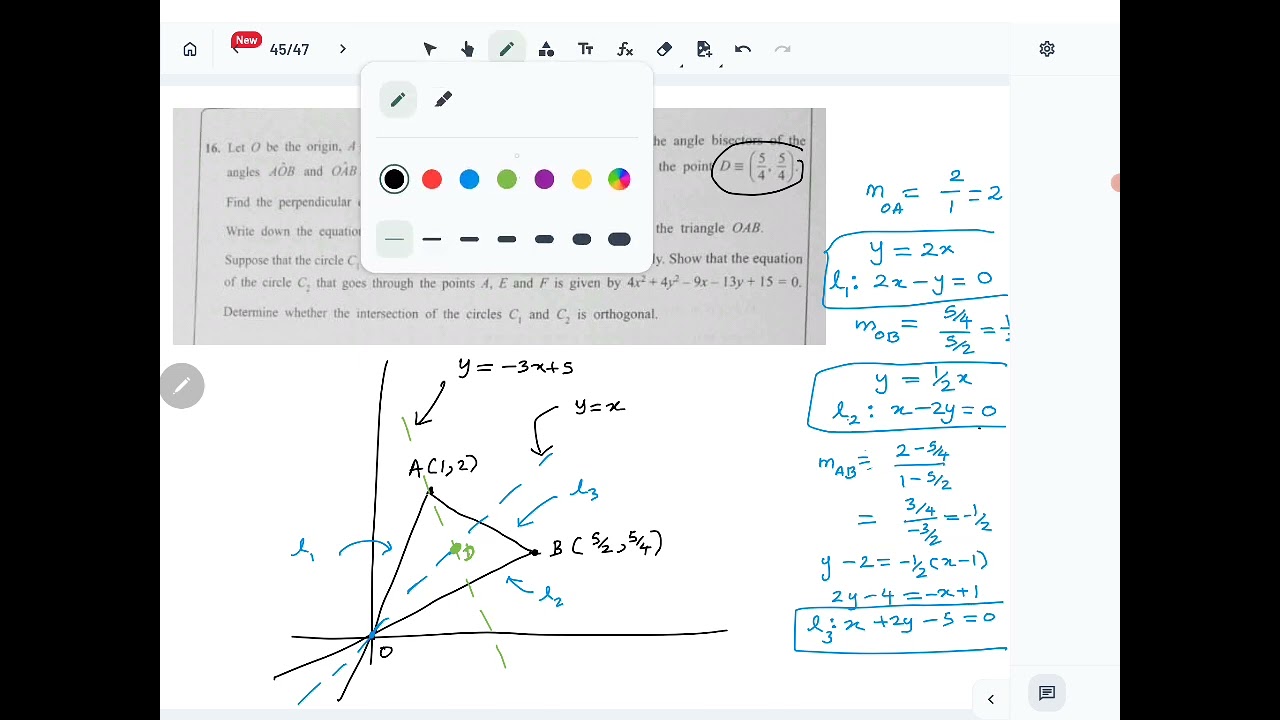 New
45/47
Tт
fx
16. Let O be the origin, A
he angle bisectors of the
angles AÔB and OÂB
the point D ≡ (5/4, 5/4).
Find the perpendicular
Write down the equation
the triangle OAB.
Suppose that the circle C₁
ly. Show that the equation
of the circle C₂ that goes through the points A, E and F is given by 4x² + 4y² − 9x − 13y + 15 = 0.
Determine whether the intersection of the circles C₁ and C₂ is orthogonal.
y = −3x+5
y = x
A(1,2)
l₃
l₁
D
B(5/2, 5/4)
l₂
O
m_OA = 2/1 = 2
y = 2x
l₁: 2x − y = 0
m_OB = (5/4)/(5/2) = 1/
y = 1/2x
l₂: x − 2y = 0
m_AB = (2 − 5/4)/(1 − 5/2)
= (3/4)/(−3/2) = −1/2
y − 2 = −1/2(x − 1)
2y − 4 = −x + 1
l₃: x + 2y − 5 = 0